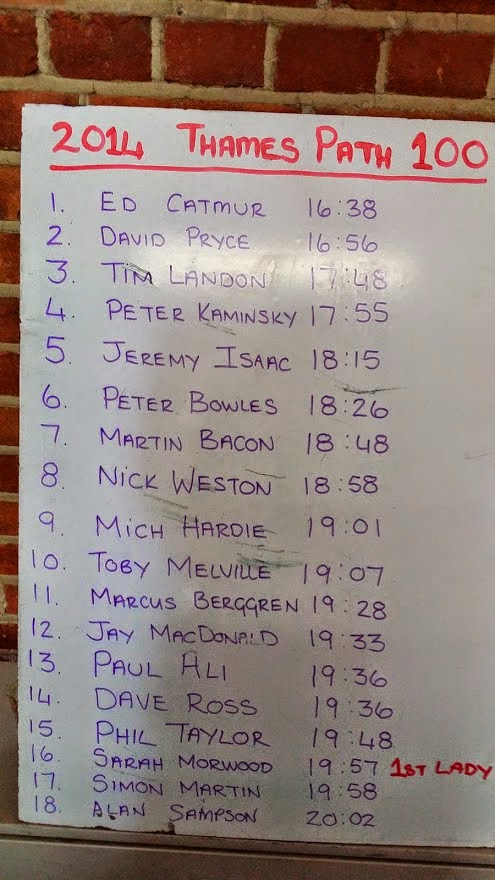 2014 THAMES PATH 100
1. ED CATMUR 16:38
2. DAVID PRYCE 16:56
3. TIM LANDON 17:48
4. PETER KAMINSKY 17:55
5. JEREMY ISAAC 18:15
6. PETER BOWLES 18:26
7. MARTIN BACON 18:48
8. NICK WESTON 18:58
9. MICH HARDIE 19:01
10. TOBY MELVILLE 19:07
11. MARCUS BERGGREN 19:28
12. JAY MACDONALD 19:33
13. PAUL ALI 19:36
14. DAVE ROSS 19:36
15. PHIL TAYLOR 19:48
16. SARAH MORWOOD 19:57 1ST LADY
17. SIMON MARTIN 19:58
18. ALAN SAMPSON 20:02